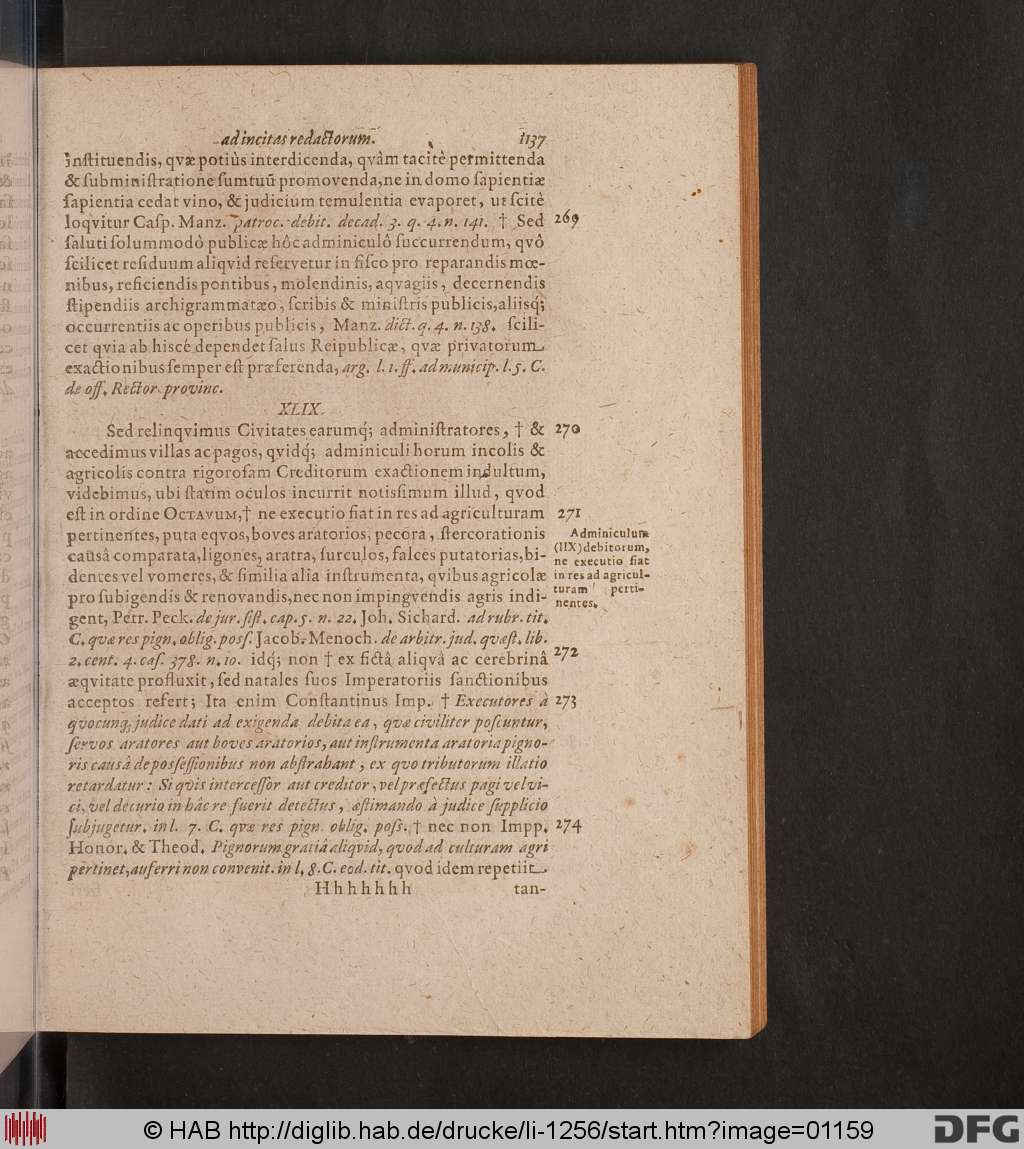 ad incitas redactorum. 1137
inſtituendis, qvæ potiùs interdicenda, qvâm tacitè permittenda
& ſubminiſtratione ſumtuū promovenda, ne in domo ſapientiæ
ſapientia cedat vino, & judicium temulentia evaporet, ut ſcitè
loqvitur Caſp. Manz. patroc. debit. decad. 3. q. 4. n. 141. † Sed 269
ſaluti ſolummodô publicæ hôc adminiculô ſuccurrendum, qvô
ſcilicet reſiduum aliqvid reſervetur in fiſco pro reparandis mœ-
nibus, reficiendis pontibus, molendinis, aqvagiis, decernendis
ſtipendiis archigrammatæo, ſcribis & miniſtris publicis, aliisq́;
occurrentiis ac operibus publicis, Manz. dict. q. 4. n. 138. ſcili-
cet qvia ab hiscé dependet ſalus Reipublicæ, qvæ privatorum
exactionibus ſemper eſt præferenda, arg. l. 1. ff. ad municip. l. 5. C.
de off. Rector. provinc.
XLIX.
Sed relinqvimus Civitates earumq́; adminiſtratores, † & 270
accedimus villas ac pagos, qvidq́; adminiculi horum incolis &
agricolis contra rigoroſam Creditorum exactionem indultum,
videbimus, ubi ſtatim oculos incurrit notisſimum illud, qvod
eſt in ordine OCTAVUM, † ne executio fiat in res ad agriculturam 271
pertinentes, puta eqvos, boves aratorios, pecora, ſtercorationis
causâ comparata, ligones, aratra, ſurculos, falces putatorias, bi-
dentes vel vomeres, & ſimilia alia inſtrumenta, qvibus agricolæ
pro ſubigendis & renovandis, nec non impingvendis agris indi-
gent, Petr. Peck. de jur. ſiſt. cap. 5. n. 22. Joh. Sichard. ad rubr. tit.
C. quæ res pign. oblig. poſſ. Jacob. Menoch. de arbitr. jud. qvæſt. lib.
2. cent. 4. caſ. 378. n. 10. idq́; non † ex fictâ aliqvâ ac cerebrinâ 272
æqvitate profluxit, ſed natales ſuos Imperatoriis ſanctionibus
acceptos refert; Ita enim Conſtantinus Imp. † Executores à 273
quocunq; judice dati ad exigenda debita ea, quæ civiliter poſcuntur,
ſervos aratores aut boves aratorios, aut inſtrumenta aratoria pigno-
ris causâ de poſſeſſionibus non abſtrahant, ex quo tributorum illatio
retardatur: Si qvis interceſſor aut creditor, vel præfectus pagi vel vi-
ci, vel decurio in hâc re fuerit detectus, æſtimando à judice ſupplicio
ſubjugetur. in l. 7. C. qvæ res pign. oblig. poſſ. † nec non Impp. 274
Honor. & Theod. Pignorum gratiâ aliqvid, quod ad culturam agri
pertinet, auferri non convenit. in l. 8. C. eod. tit. qvod idem repetiit
Hhhhhhh tan-
Adminiculum
(IIX) debitorum,
ne executio fiat
in res ad agricul-
turam perti-
nentes.
© HAB http://diglib.hab.de/drucke/li-1256/start.htm?image=01159
DFG